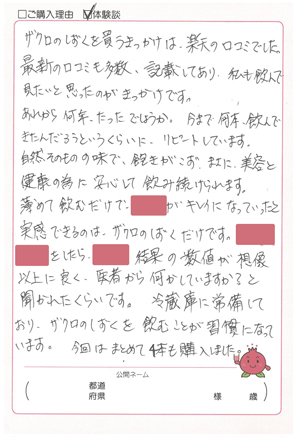 □ご購入理由 ☑体験談
ザクロのしずくを買うきっかけは、楽天の口コミでした。
最新の口コミも多数、記載してあり、私も飲んで
見たいと思ったのがきっかけです。
あれから何年たったでしょうか。今まで何本飲んで
きたんだろうというくらいに、リピートしています。
自然そのもの味で、飽きがこず、まさに、美容と
健康の為に安心して飲み続けられます。
薄めて飲むだけで、がキレイになっていったと
実感できるのは、ザクロのしずくだけです。
をしたら、結果の数値が想像
以上に良く、医者から何かしていますか?と
聞かれたくらいです。冷蔵庫に常備して
おり、ザクロのしずくを飲むことが習慣になって
います。今回はまとめて4本も購入しました。
公開ネーム
( 都道府県 様 歳 )